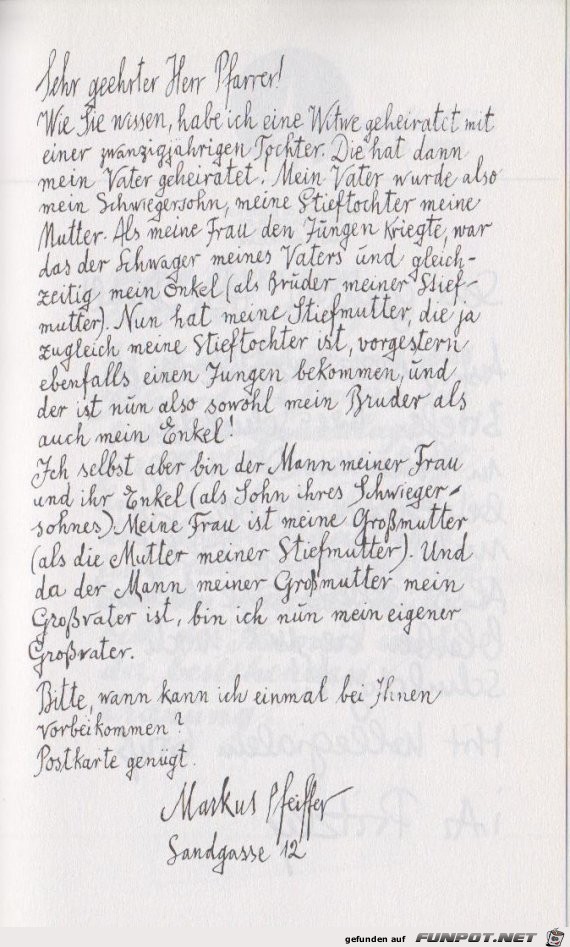 Sehr geehrter Herr Pfarrer!
Wie Sie wissen, habe ich eine Witwe geheiratet mit
einer zwanzigjährigen Tochter. Die hat dann
mein Vater geheiratet. Mein Vater wurde also
mein Schwiegersohn, meine Stieftochter meine
Mutter. Als meine Frau den Jungen kriegte, war
das der Schwager meines Vaters und gleich-
zeitig mein Enkel (als Bruder meiner Stief-
mutter). Nun hat meine Stiefmutter, die ja
zugleich meine Stieftochter ist, vorgestern
ebenfalls einen Jungen bekommen, und
der ist nun also sowohl mein Bruder als
auch mein Enkel!
Ich selbst aber bin der Mann meiner Frau
und ihr Enkel (als Sohn ihres Schwieger-
sohnes). Meine Frau ist meine Großmutter
(als die Mutter meiner Stiefmutter). Und
da der Mann meiner Großmutter mein
Großvater ist, bin ich nun mein eigener
Großvater.
Bitte, wann kann ich einmal bei Ihnen
vorbeikommen?
Postkarte genügt.
Markus Pfeiffer
Sandgasse 12
gefunden auf FUNPOT.NET